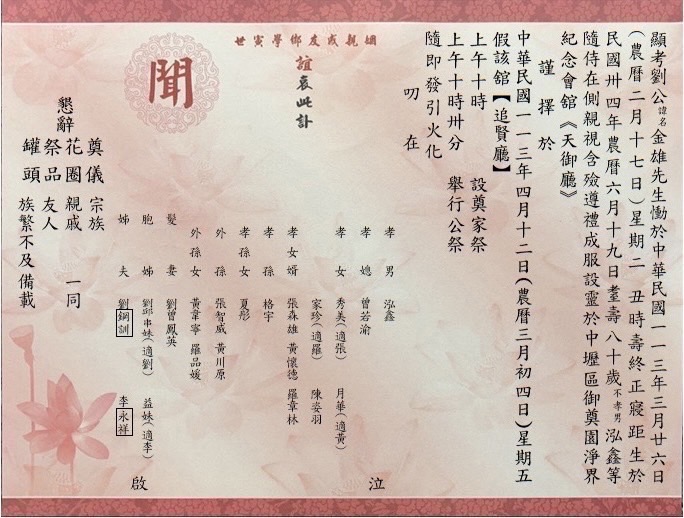 顯考劉公諱名金雄先生慟於中華民國一一三年三月廿六日
(農曆二月十七日)星期二 丑時壽終正寢距生於
民國卅四年農曆六月十九日耋壽八十歲不孝男泓鑫等
隨侍在側親視含殮遵禮成服設靈於中壢區御奠園淨界
紀念會舘《天御廳》
謹擇於
中華民國一一三年四月十二日(農曆三月初四日)星期五
假該舘【追賢廳】
上午十時 設奠家祭
上午十時卅分 舉行公祭
隨即發引火化
叨在
姻親戚友鄉學寅世
誼哀此訃
聞
孝男 泓鑫
孝媳 曾若渝
孝女 秀美(適張) 月華(適黃)
家珍(適羅) 陳姿羽
孝女婿 張森雄 黃懷德 羅章林
孝孫 格宇
孝孫女 夏彤
外孫 張智威 黃川原
外孫女 黃韋寧 羅品媛
髮妻 劉曾鳳英
胞姊 劉邱串妹(適劉) 益妹(適李)
姊夫 劉鋼訓 李永祥
泣
啟
奠儀 宗族
花圈 親戚
懇辭 一同
祭品 友人
罐頭 族繁不及備載